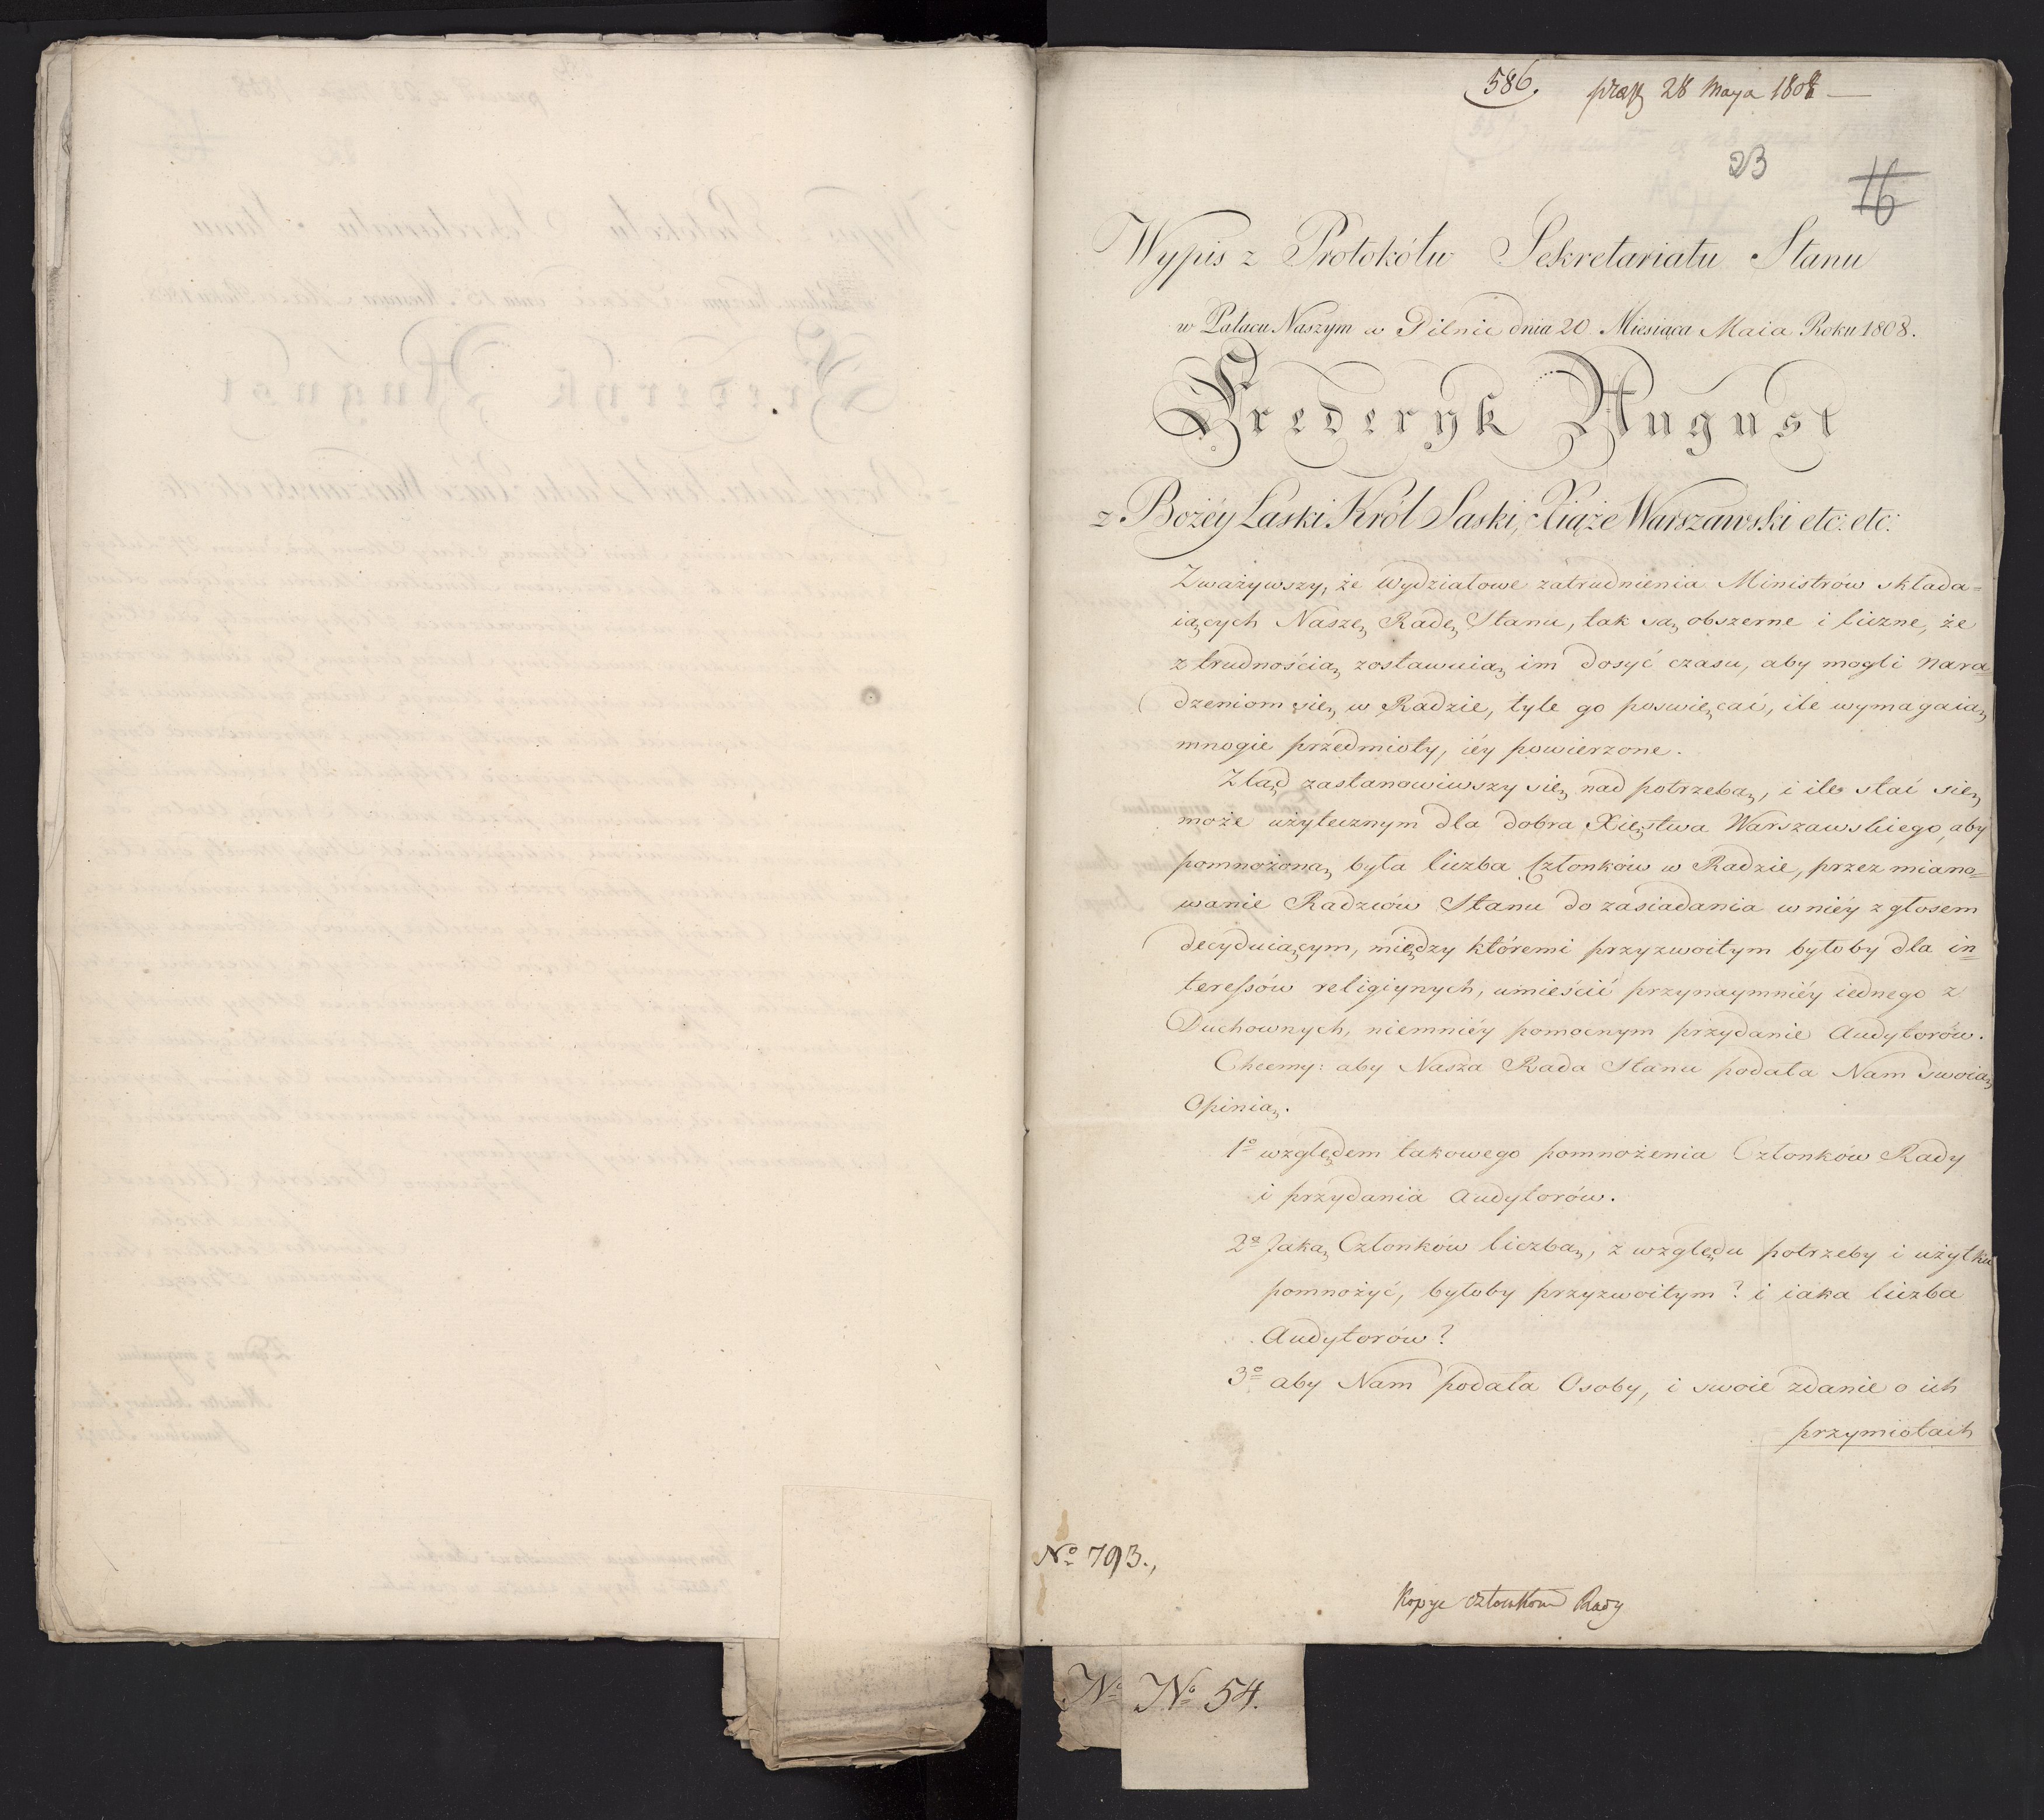 586. 28 Maya 1808 —
23
16
Wypis z Protokółu Sekretariatu Stanu
w Pałacu Naszym w Pilnic dnia 20 Miesiąca Maia Roku 1808.
Frederyk August
z Bożéy Łaski Król Saski, Xiąże Warszawski etc: etc:
Zważywszy, że Wydziałowe zatrudnienia Ministrów składa=
iących Naszę Radę Stanu, tak są obszerne i liczne, że
z trudnością zostawuią im dosyć czasu, aby mogli nara=
dzeniom się w Radzie, tyle go poswięcać, ile wymagaią
mnogie przedmioty, iéy powierzone.
Ztąd zastanowiwszy się nad potrzebą, i ile stać się
może użytecznym dla dobra Xięstwa Warszawskiego, aby
pomnożoną była liczba Członków w Radzie, przez miano=
wanie Radzców Stanu do zasiadania w niéy z głosem
decyduiącym, między któremi przyzwoitym byłoby dla in=
teressów religiynych, umieścić przynaymniéy iednego z
Duchownych, niemniéy pomocnym przydanie Audytorów.
Chcemy: aby Nasza Rada Stanu podała Nam swoią
Opinią.
1o względem takowego pomnożenia Członków Rady
i przydania Audytorów.
2o Jaką Członków liczbą, z względu potrzeby i użytku
pomnożyć, byłoby przyzwoitym? i iaka liczba
Audytorów?
3o aby Nam podała Osoby, i swoie zdanie o ich
przymiotach
No 793.,
Kopye członkom Rady
No No 54.